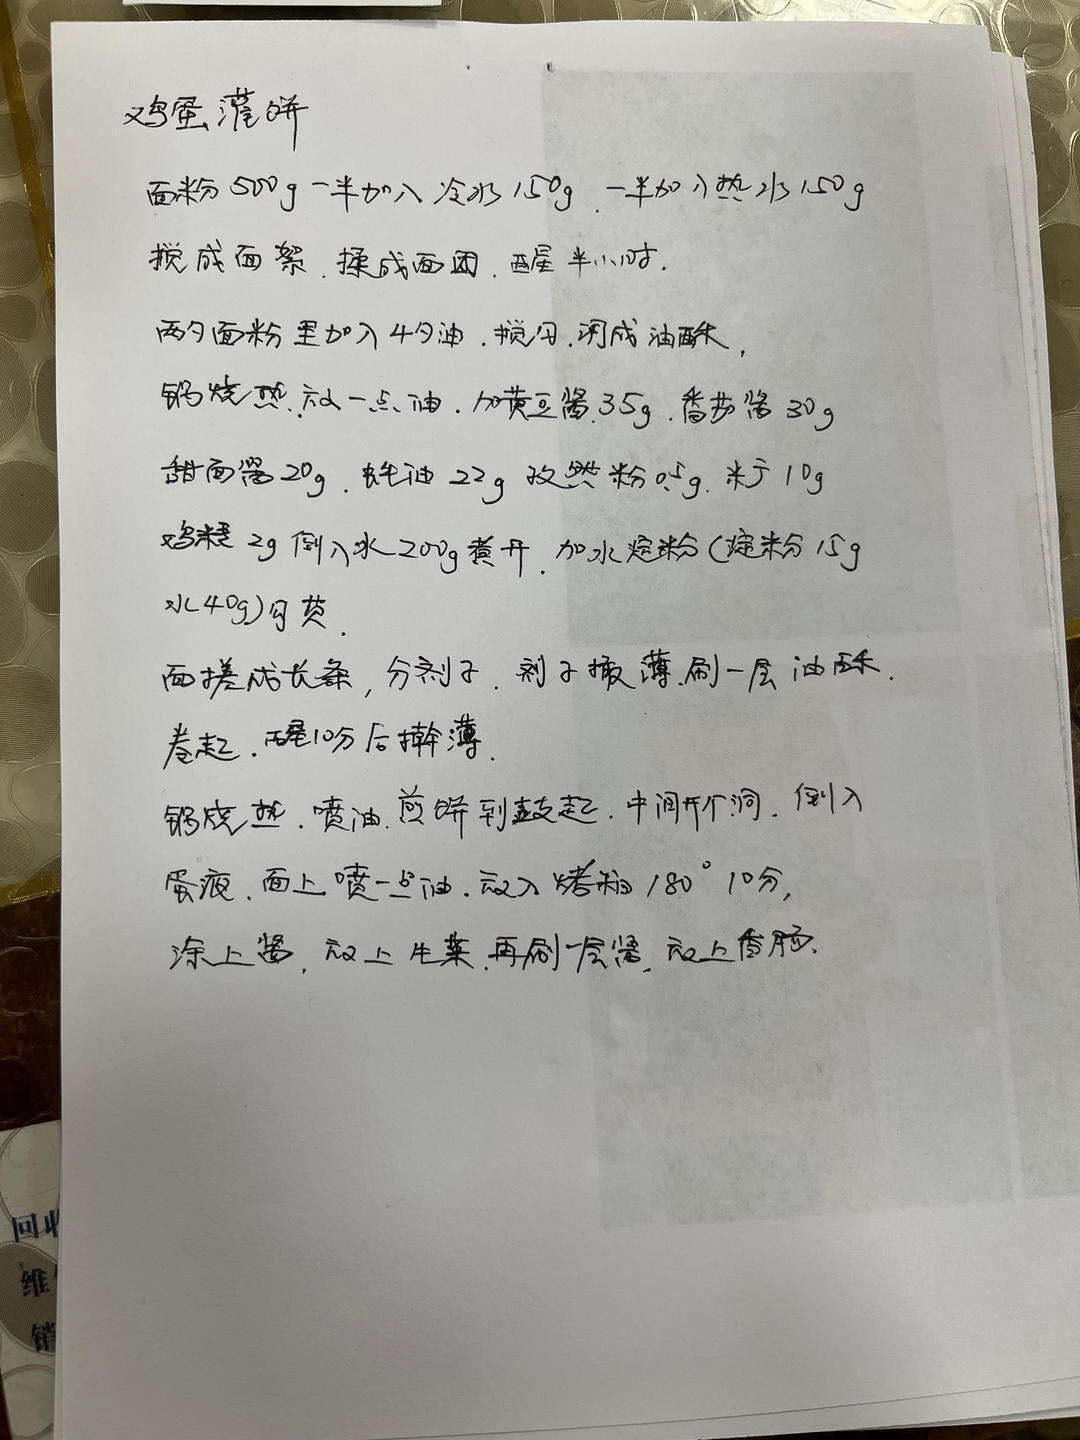 鸡蛋灌饼
面粉500g 一半加入冷水150g、一半加入热水150g
搅成面絮、揉成面团、醒半小时.
两勺面粉里加入4勺油.搅匀.调成油酥,
锅烧热.放一点油.加黄豆酱35g.番茄酱30g
甜面酱20g、蚝油22g 孜然粉0.5g、米于10g
鸡精2g倒入水200g煮开、加水淀粉(淀粉15g
水40g)勾芡.
面搓成长条,分剂子.剂子擀薄.刷一层油酥.
卷起.醒10分后擀薄.
锅烧热.喷油.煎饼到鼓起.中间开个洞.倒入
蛋液.面上喷一点油.放入烤箱180°10分,
涂上酱、放上生菜.再刷一层酱、放上香肠.
回收
维
销